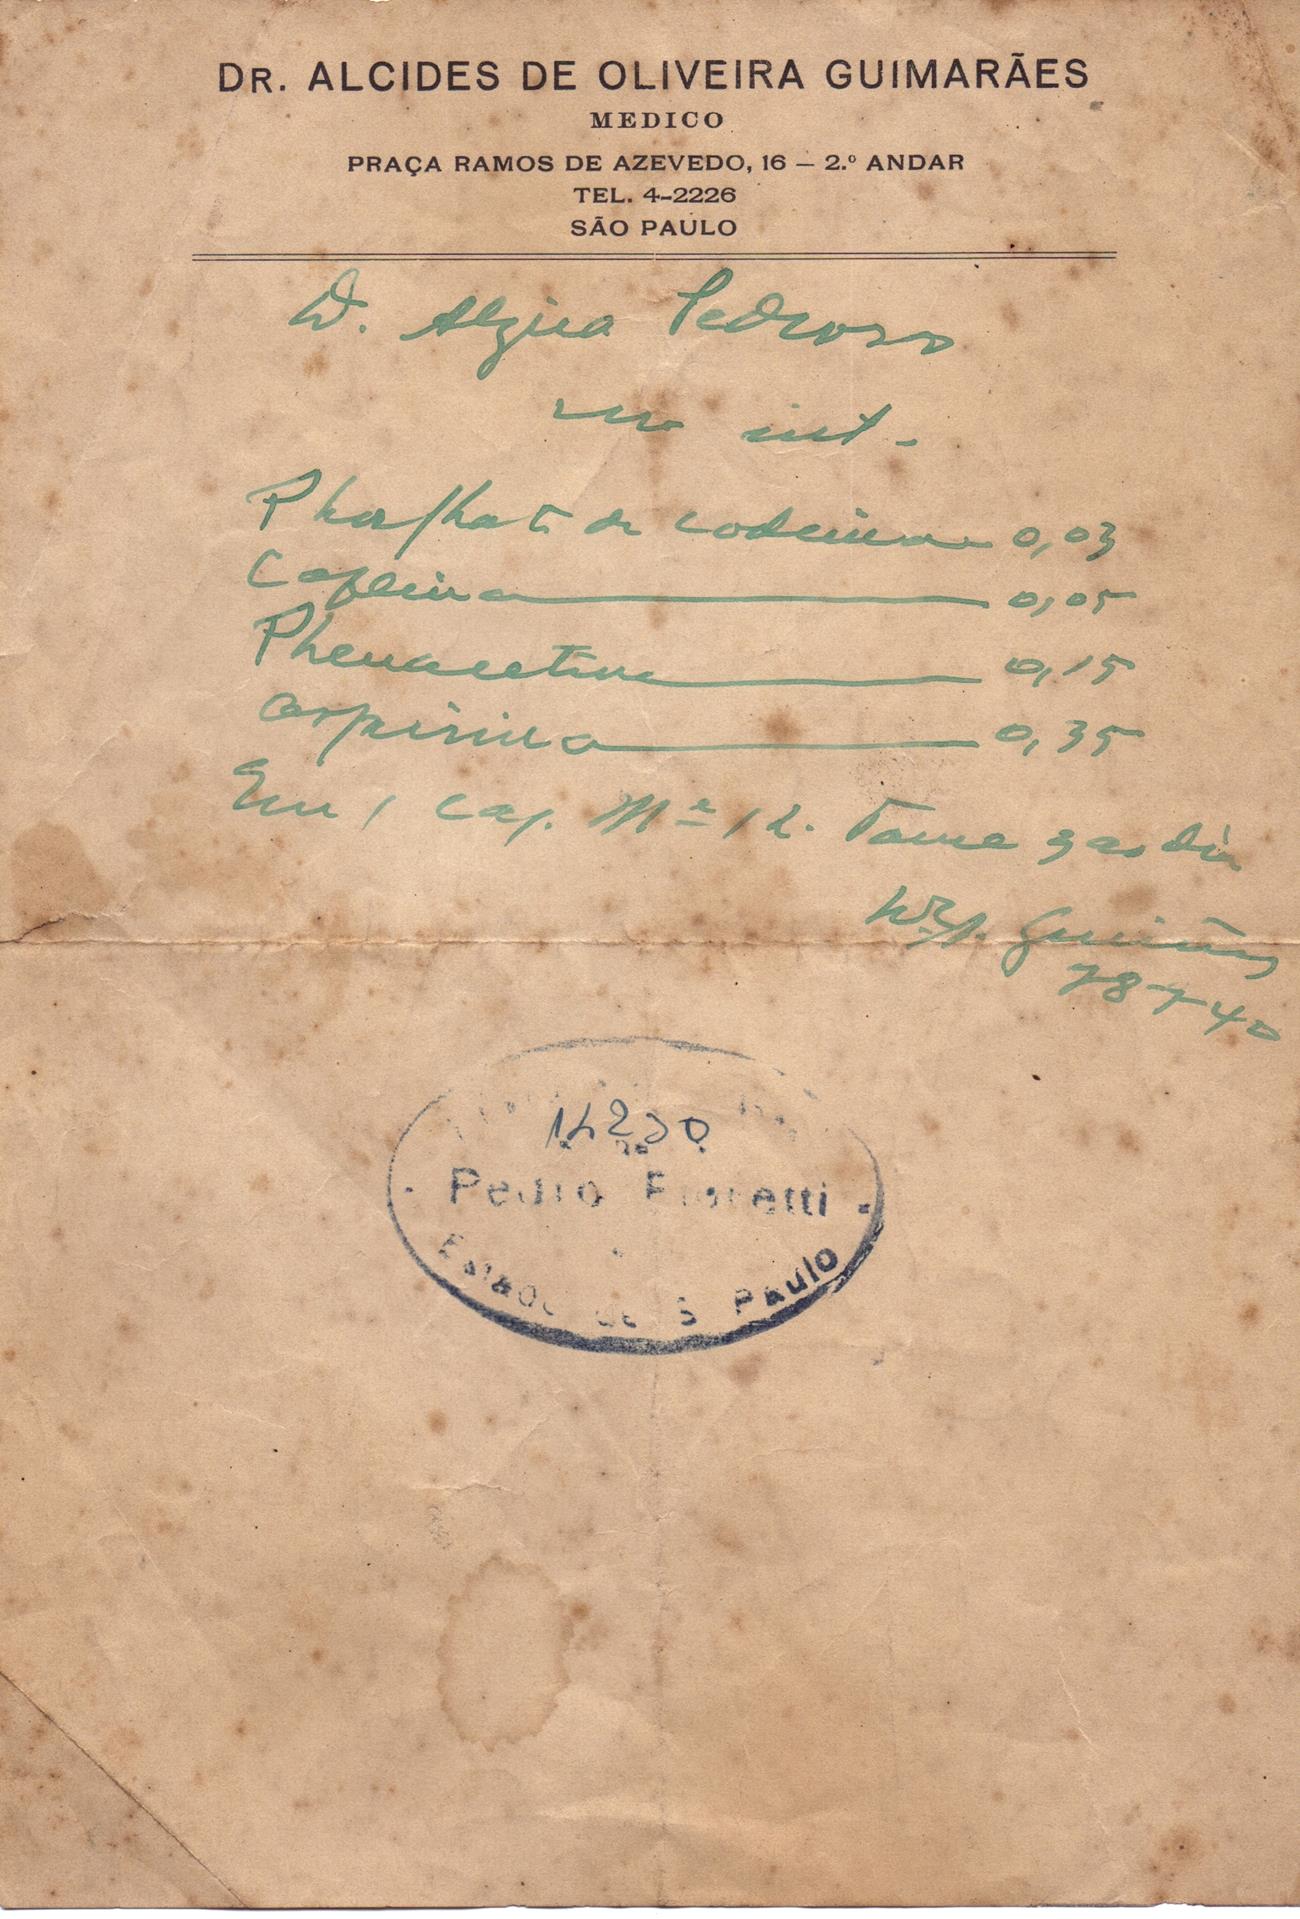 DR. ALCIDES DE OLIVEIRA GUIMARÃES
MEDICO
PRAÇA RAMOS DE AZEVEDO, 16 — 2.º ANDAR
TEL. 4-2226
SÃO PAULO
D. Alzira Pedroso
uso int.
Phosphato de codeina 0,03
Cafeina 0,05
Phenacetina 0,15
Aspirina 0,35
Em 1 cap. Me 12. Tome 3 ao dia
Guimarães
28-7-40
14230
Pedro Fioretti
Estado de S. Paulo